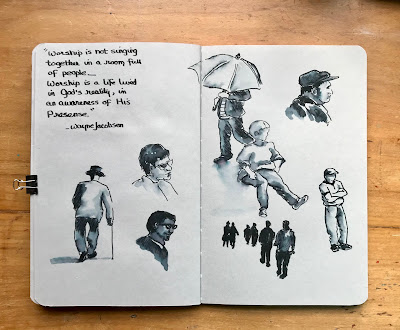 "Worship is not singing
together in a room full
of people....
Worship is a life lived
in God's reality, in
an awareness of His
Presense."
- Wayne Jacobson